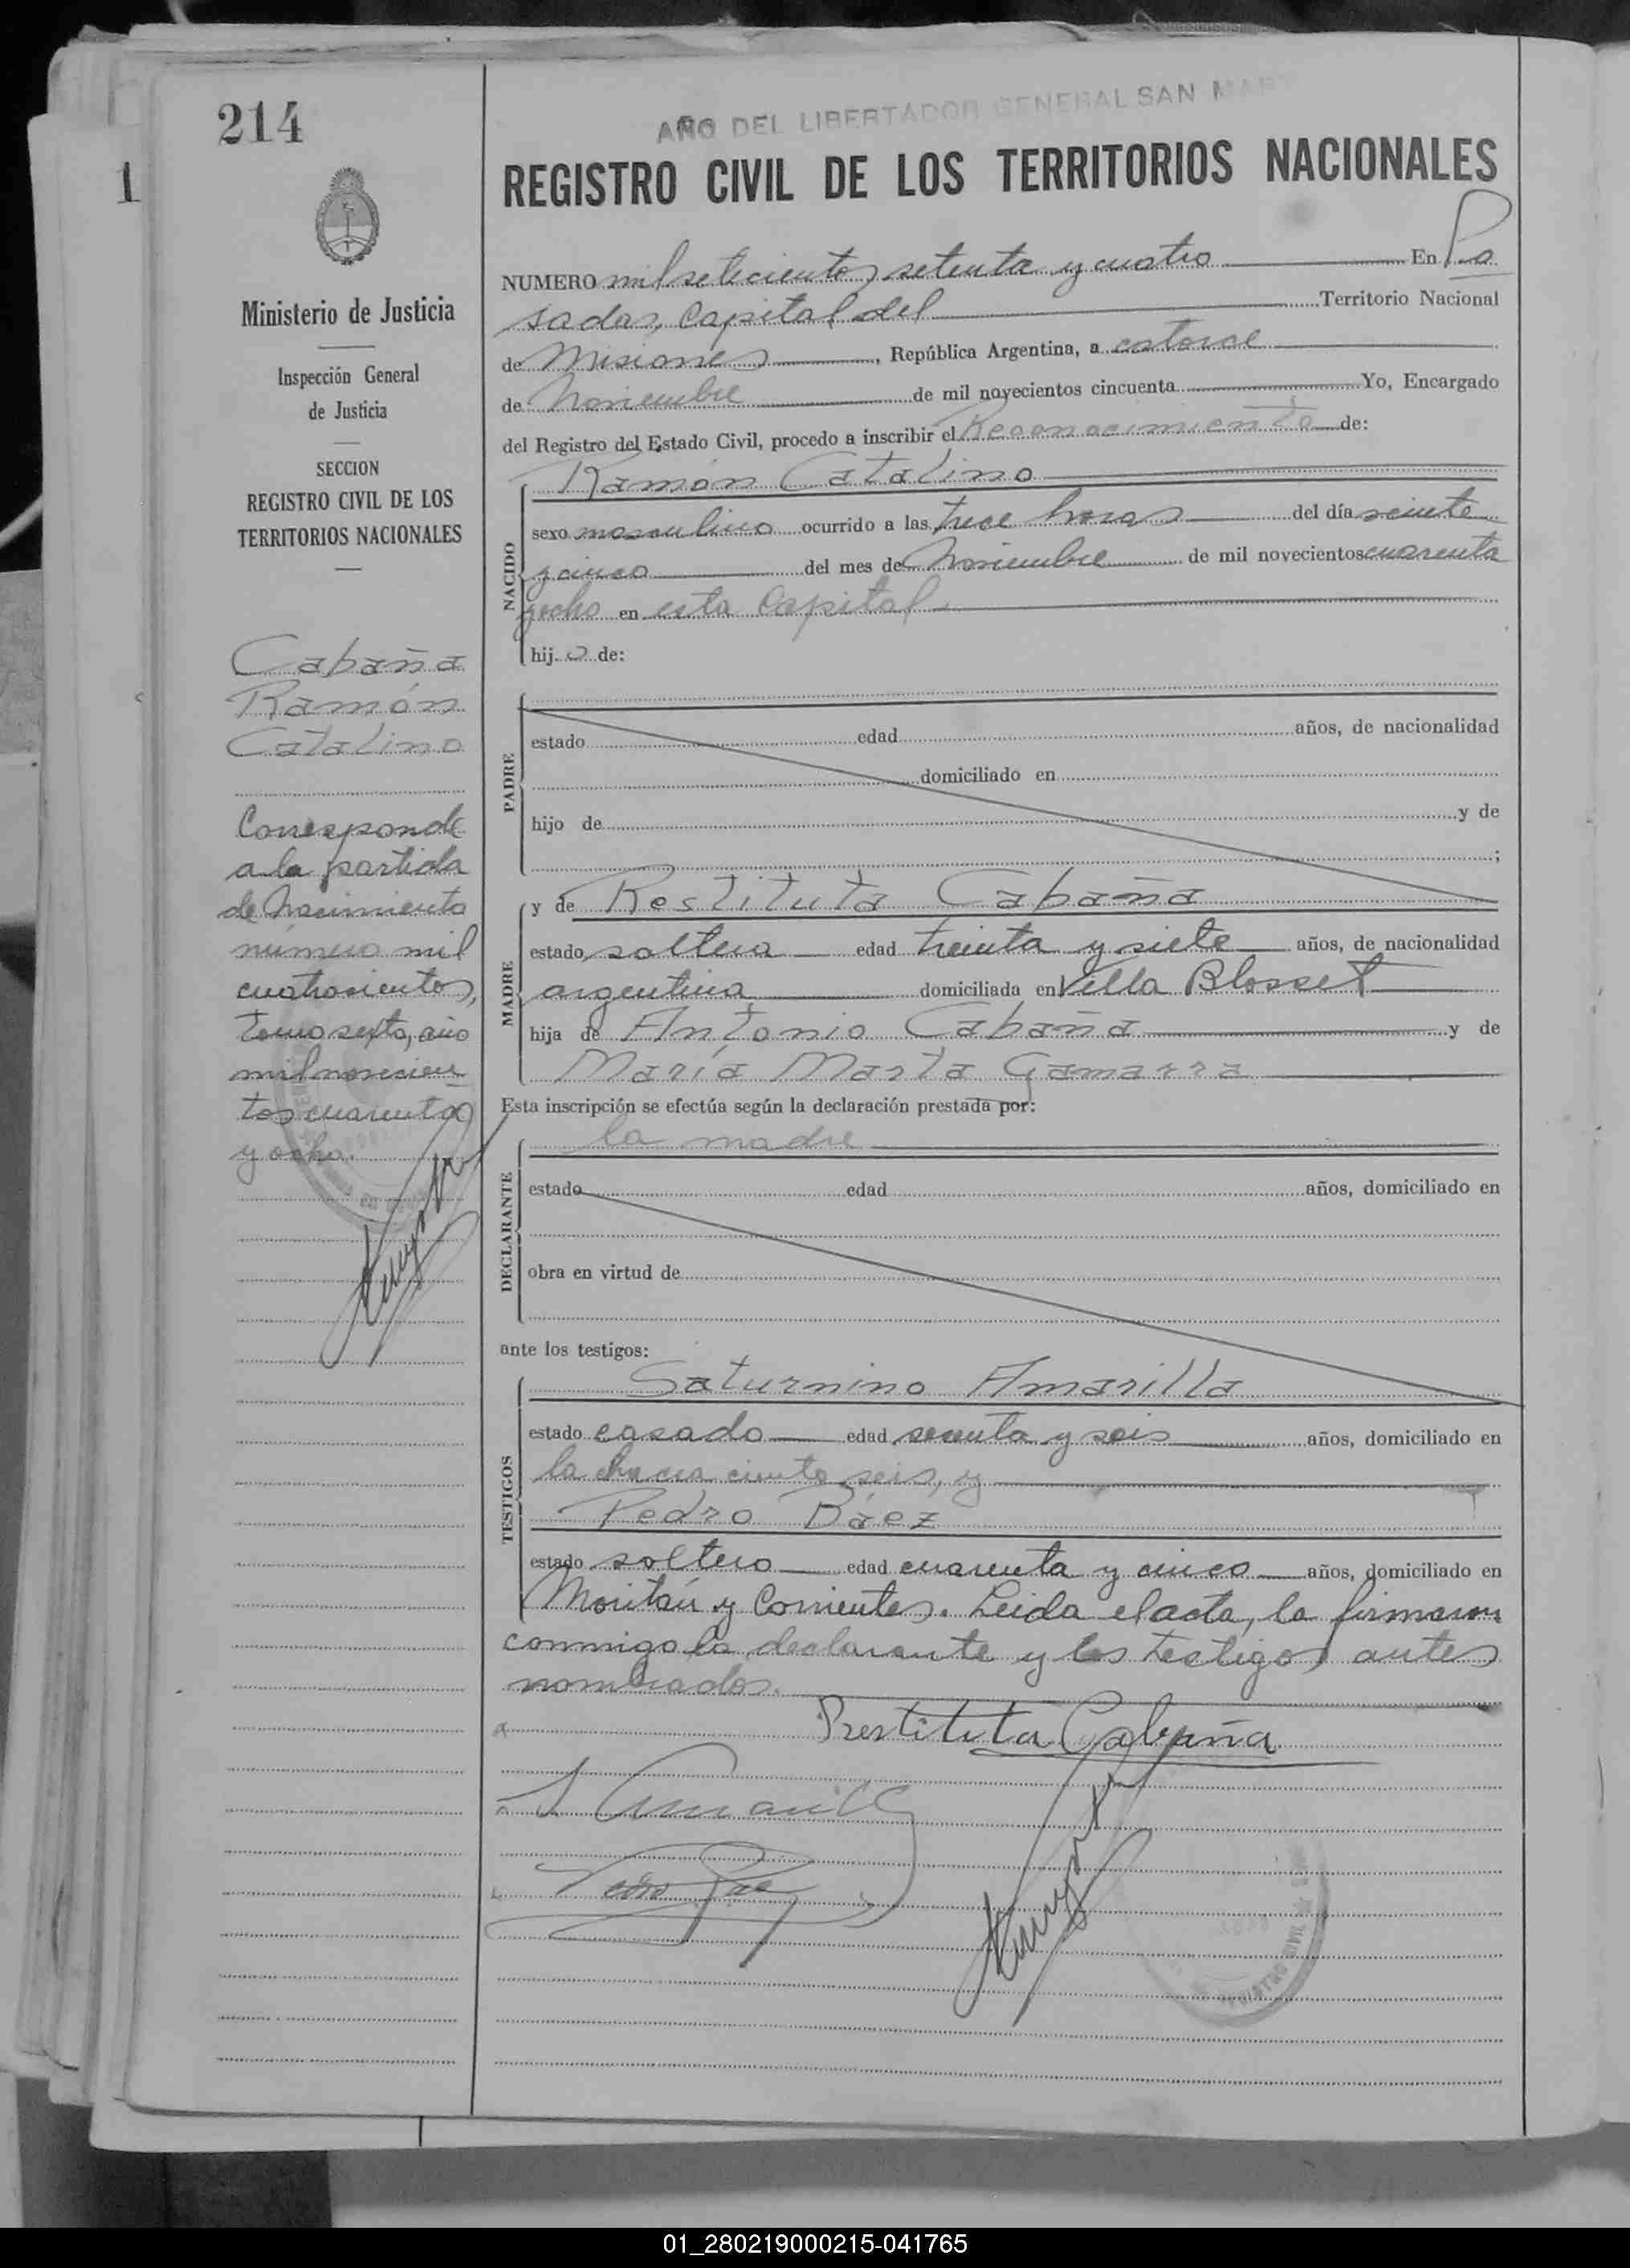 214
1
AÑO DEL LIBERTADOR GENERAL SAN MAR
REGISTRO CIVIL DE LOS TERRITORIOS NACIONALES
Ministerio de Justicia
Inspección General
de Justicia
SECCION
REGISTRO CIVIL DE LOS
TERRITORIOS NACIONALES
Cabaña
Ramón
Catalino
Corresponde
a la partida
de Nacimiento
número mil
cuatrocientos,
tomo sexto, año
mil novecien
tos cuarenta
y ocho.
NUMERO mil setecientos setenta y cuatro En Po
sadas, Capital del Territorio Nacional
de Misiones, República Argentina, a catorce
de Noviembre de mil novecientos cincuenta Yo, Encargado
del Registro del Estado Civil, procedo a inscribir el Reconocimiento de:
NACIDO
Ramón Catalino
sexo masculino ocurrido a las trece horas del día veinte
y cinco del mes de Noviembre de mil novecientos cuarenta
y ocho en esta Capital.
hijo de:
PADRE
estado edad años, de nacionalidad
domiciliado en
hijo de y de
;
MADRE
y de Restituta Cabaña
estado soltera edad treinta y siete años, de nacionalidad
argentina domiciliada en Villa Blosset
hija de Antonio Cabaña y de
María Marta Gamarra
Esta inscripción se efectúa según la declaración prestada por:
DECLARANTE
la madre
estado edad años, domiciliado en
obra en virtud de
ante los testigos:
TESTIGOS
Saturnino Amarilla
estado casado edad sesenta y seis años, domiciliado en
la chacra ciento seis, y
Pedro Báez
estado soltero edad cuarenta y cinco años, domiciliado en
y Corrientes. Leida el acta, la firmaron
conmigo la declarante y los testigos antes
nombrados.
Restituta Cabaña
S Amarilla
Pedro Baez
01_280219000215-041765